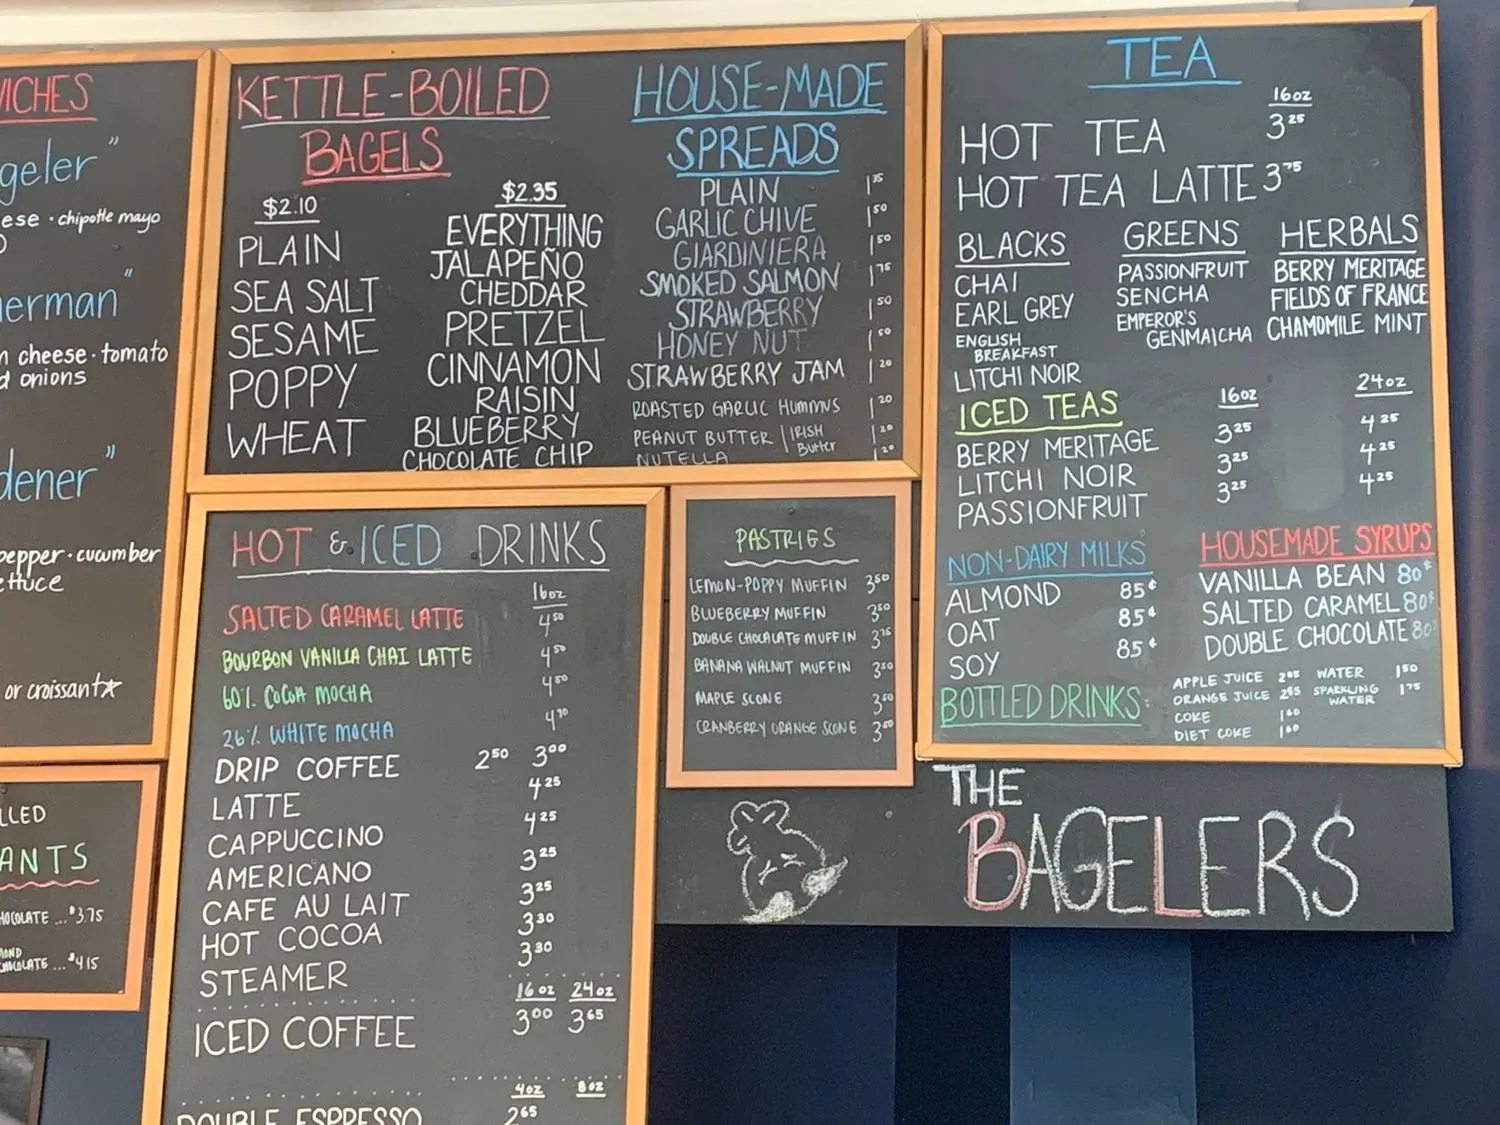 WICHES
geler"
ese · chipotle mayo
erman"
cheese · tomato
onions
dener"
pepper · cucumber
ettuce
or croissant☆
LLED
ANTS
HOCOLATE ... $3.75
MOND
CHOCOLATE ... $4.15
KETTLE-BOILED
BAGELS
$2.10
PLAIN
SEA SALT
SESAME
POPPY
WHEAT
$2.35
EVERYTHING
JALAPEÑO
CHEDDAR
PRETZEL
CINNAMON
RAISIN
BLUEBERRY
CHOCOLATE CHIP
HOUSE-MADE
SPREADS
PLAIN 1 35
GARLIC CHIVE 1 50
GIARDINIERA 1 50
SMOKED SALMON 1 75
STRAWBERRY 1 50
HONEY NUT 1 50
STRAWBERRY JAM 1 20
ROASTED GARLIC HUMMUS 1 20
PEANUT BUTTER | IRISH Butter 1 20
NUTELLA 1 20
HOT & ICED DRINKS
16oz
SALTED CARAMEL LATTE 4 50
BOURBON VANILLA CHAI LATTE 4 50
60% COCOA MOCHA 4 50
26% WHITE MOCHA 4 70
DRIP COFFEE 2 50 3 00
LATTE 4 25
CAPPUCCINO 4 25
AMERICANO 3 25
CAFE AU LAIT 3 25
HOT COCOA 3 30
STEAMER 3 30
16oz 24oz
ICED COFFEE 3 00 3 65
4oz 8oz
DOUBLE ESPRESSO 2 65
PASTRIES
LEMON-POPPY MUFFIN 3 50
BLUEBERRY MUFFIN 3 50
DOUBLE CHOCALATE MUFFIN 3 75
BANANA WALNUT MUFFIN 3 50
MAPLE SCONE 3 50
CRANBERRY ORANGE SCONE 3 50
TEA
16oz
HOT TEA 3 25
HOT TEA LATTE 3 75
BLACKS
CHAI
EARL GREY
ENGLISH
BREAKFAST
LITCHI NOIR
GREENS
PASSIONFRUIT
SENCHA
EMPEROR'S
GENMAICHA
HERBALS
BERRY MERITAGE
FIELDS OF FRANCE
CHAMOMILE MINT
ICED TEAS 16oz 24oz
BERRY MERITAGE 3 25 4 25
LITCHI NOIR 3 25 4 25
PASSIONFRUIT 3 25 4 25
NON-DAIRY MILKS
ALMOND 85¢
OAT 85¢
SOY 85¢
HOUSEMADE SYRUPS
VANILLA BEAN 80¢
SALTED CARAMEL 80¢
DOUBLE CHOCOLATE 80¢
BOTTLED DRINKS:
APPLE JUICE 2 85
ORANGE JUICE 2 85
COKE 1 60
DIET COKE 1 60
WATER 1 50
SPARKLING 1 75
WATER
THE
BAGELERS